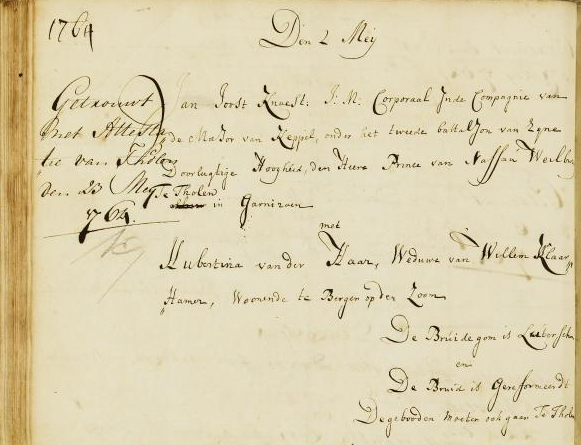 1764
Den 2 Meij
Getrouwt
met Attesta
tie van Tholen
den 23 Mey
1764.
Jan Joost Knuest: J: M: Corporaal Inde Compagnie van
de Major van Keppel, onder het tweede battaljon van Zyne
Doorlugtige Hoogheid, den Heere Prince van Nassau Weilburg
Te Tholen
in Garnizoen
met
Hubertina van der Haar, Weduwe van Willem Klaar
Hamer, Woonende te Bergen op den Zoom
De Bruidegom is Luters
en
De Bruid is Gereformeerdt
De gebooden moeten ook gaan Te Tholen